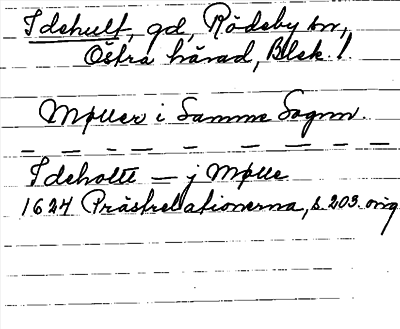 Idehult, gd, Rödeby sn,
Östra härad, Blek. l.
Møller i Samme Sognn.
Ideholtt — j Mølle
1624 Prästrelationerna, s. 203. orig